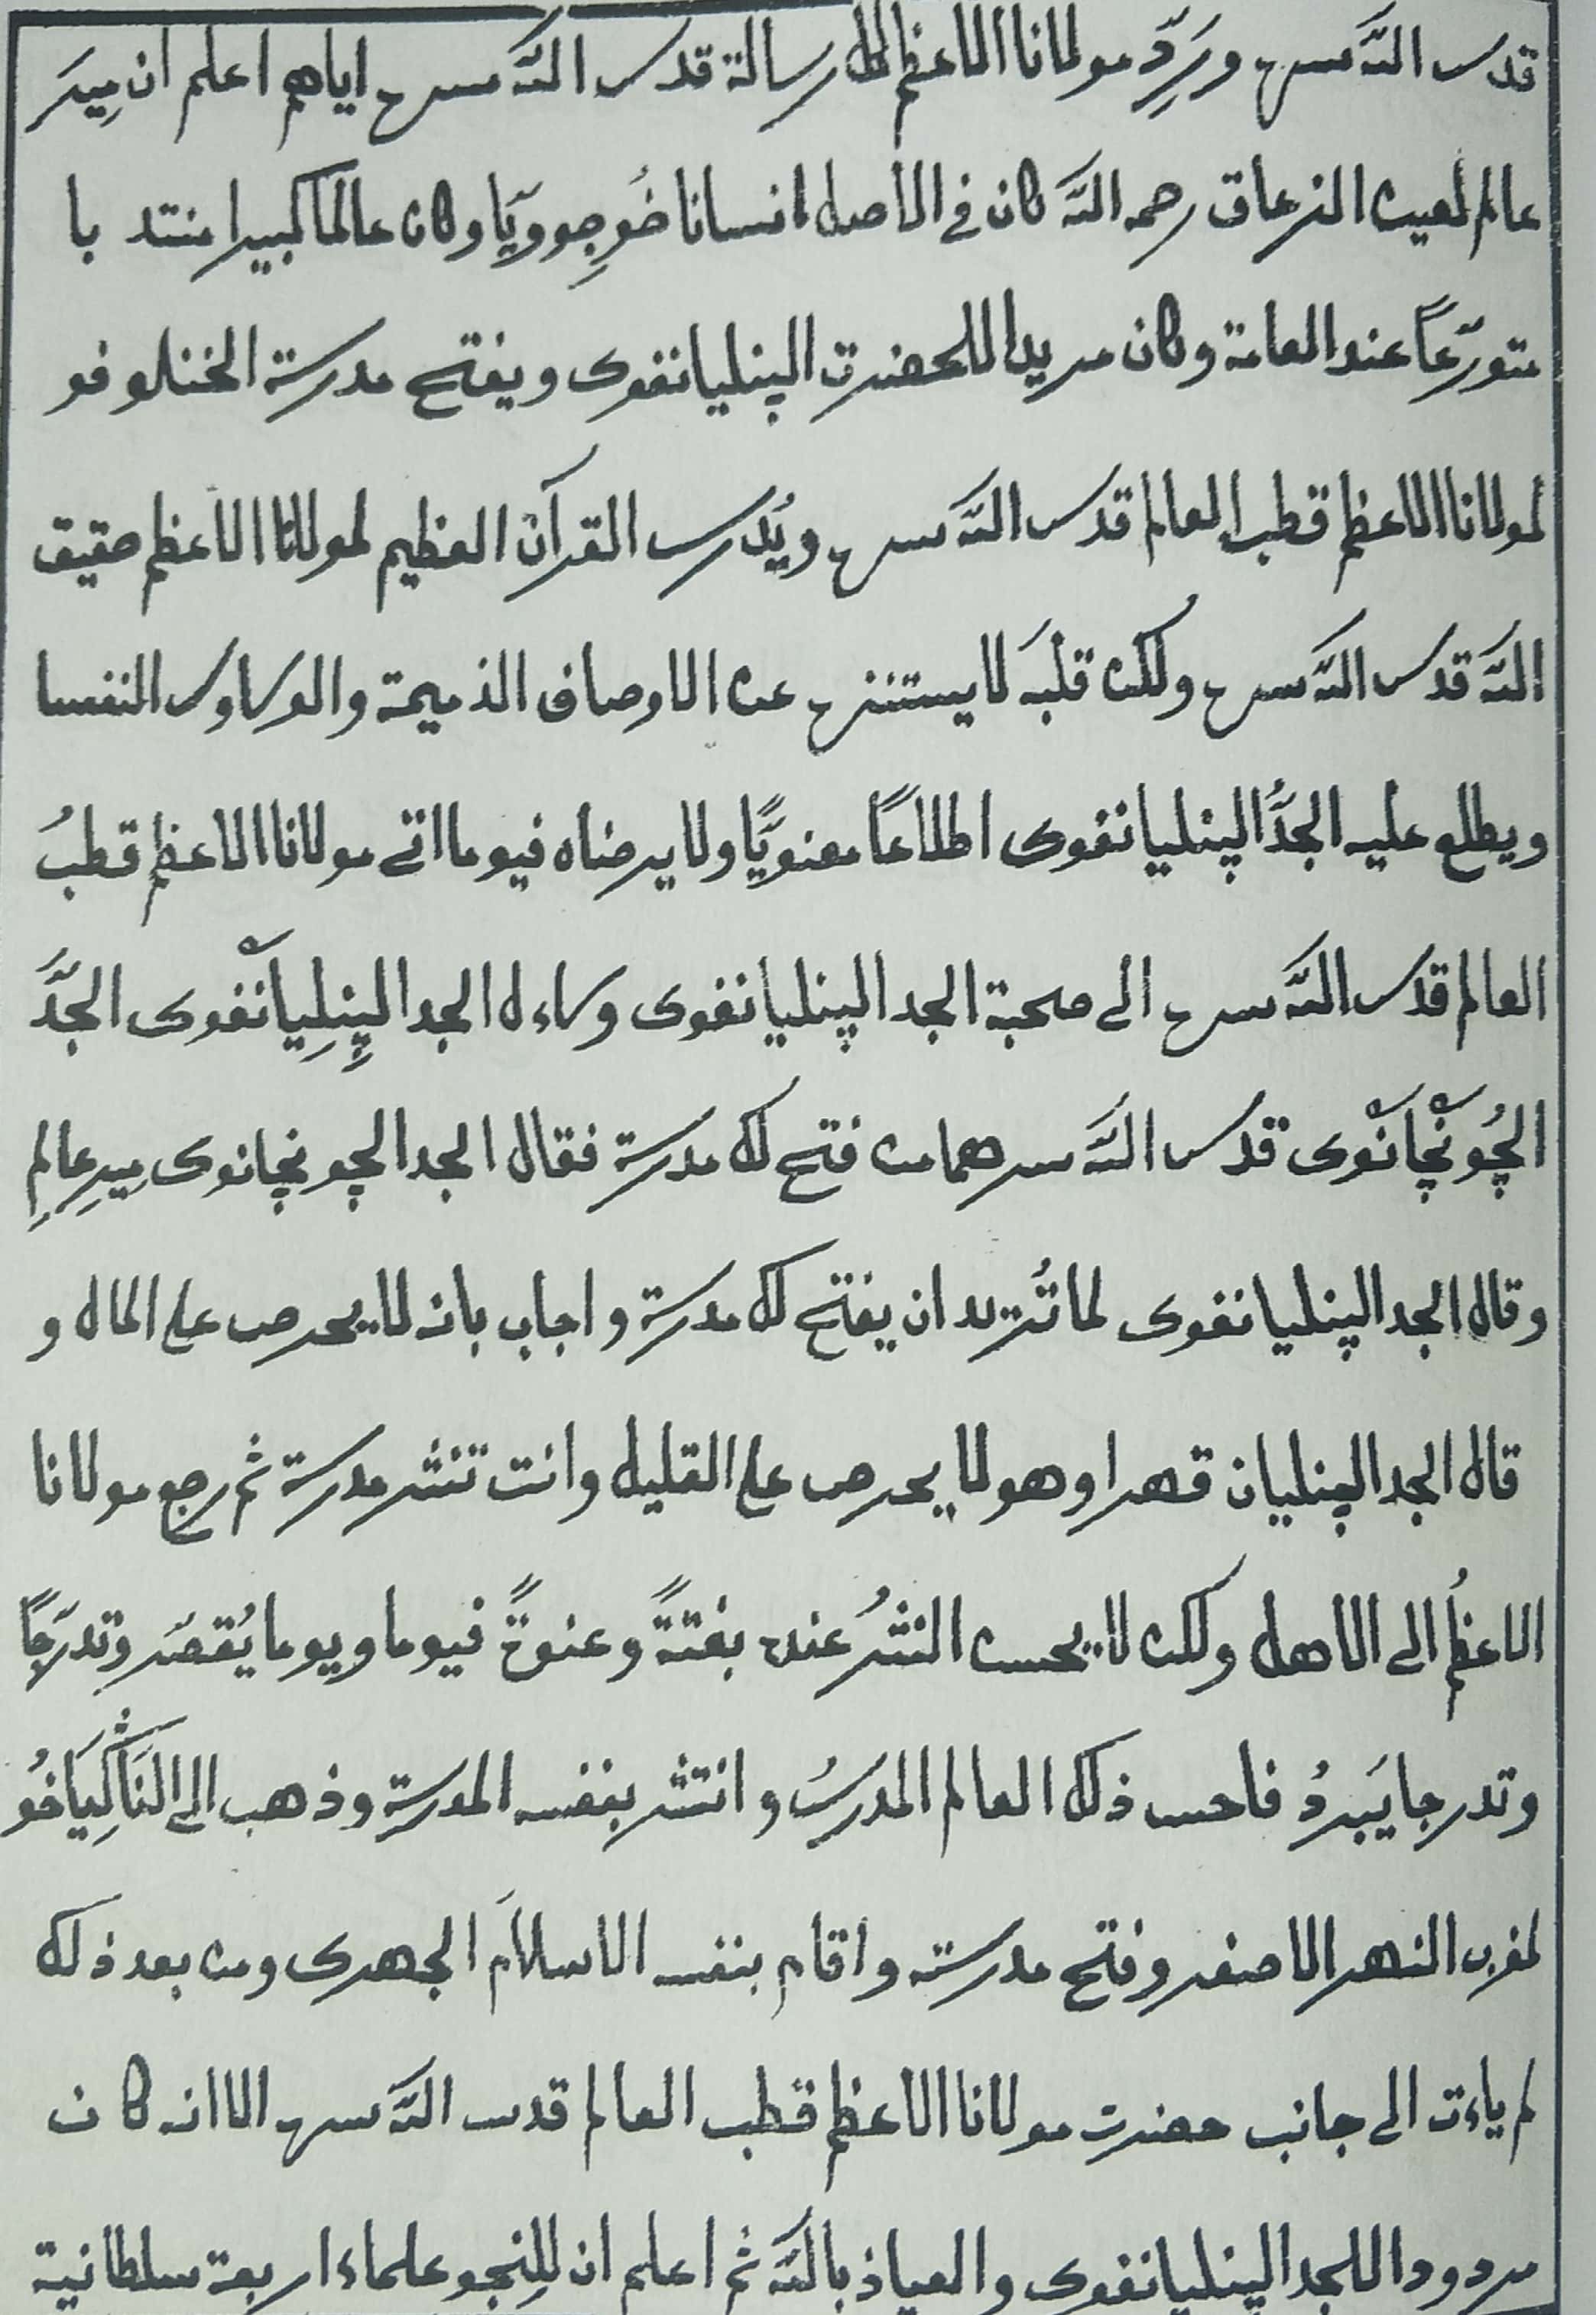 قدس اللّه سره ورَدِّ مولانا الاعظم رسالة قدس اللّه سره اياهم اعلم ان مِيرَ
عالم لعين النزعاق رحمه اللّه كان في الاصل انسانا خُوجِوويًا وكان عالما كبيرا منتد با
متورّعًا عند العامة وكان مريدا للحضرت الپنليانغوى ويفتح مدرسة الخنلوفو
لمولانا الاعظم قطب العالم قدس اللّه سره ويُدرس القرآن العظيم لمولانا الاعظم حقيق
اللّه قدس اللّه سره ولكن قلبَه لا يستنزه عن الاوصاف الذميمة والوساوس النفسا
ويطلع عليه الجدُّ الپنليانغوى اطلاعًا معنويًّا ولا يرضاه فيوما اتى مولانا الاعظم قطبُ
العالم قدس اللّه سره الى صحبة الجد الپنليانغوى وساءل الجد الپِنلِيانغوى الجدَّ
الچُونچانوى قدس اللّه سرهما من فتح لك مدرسة فقال الجد الچونچانوى مِيرِ عالمِ
وقال الجد الپنليانغوى لما تُريد ان يفتح لك مدرسة واجاب بانه لا يحرص على المال و
قال الجد الپنليان قهرا وهو لا يحرص على القليل وانت تنشر مدرسة ثم رجع مولانا
الاعظمُ الى الاهل ولكن لا يحسن النشرُ عنده بغتةً وعنوةً فيوما ويوما يُقصر وتدرّجًا
وتدرجا يَبردُ فاحس ذلك العالم المدرسُ وانتشر بنفسه المدرسة وذهب الى النَاشكِيَاخُو
لغرب النهر الاصفر وفتح مدرسته واقام بنفسه الاسلامَ الجهرى ومن بعد ذلك
لم ياءت الى جانب حضرت مولانا الاعظم قطب العالم قدس اللّه سره الا انه كان
مردودا للجد الپنليانغوى والعياذ باللّه ثم اعلم ان لِلنِجو علماء اربعة سلطانية